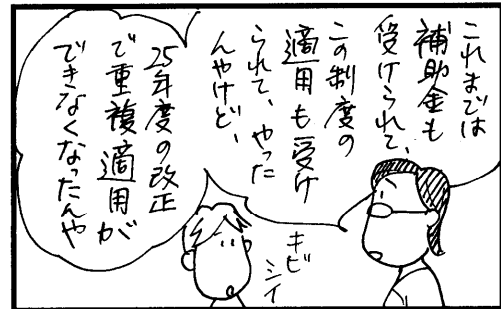 これまでは
補助金も
受けられて、
この制度の
適用も受け
られて、やった
んやけど、
25年度の改正
で重複適用が
できなくなったんや
キビ
シイ